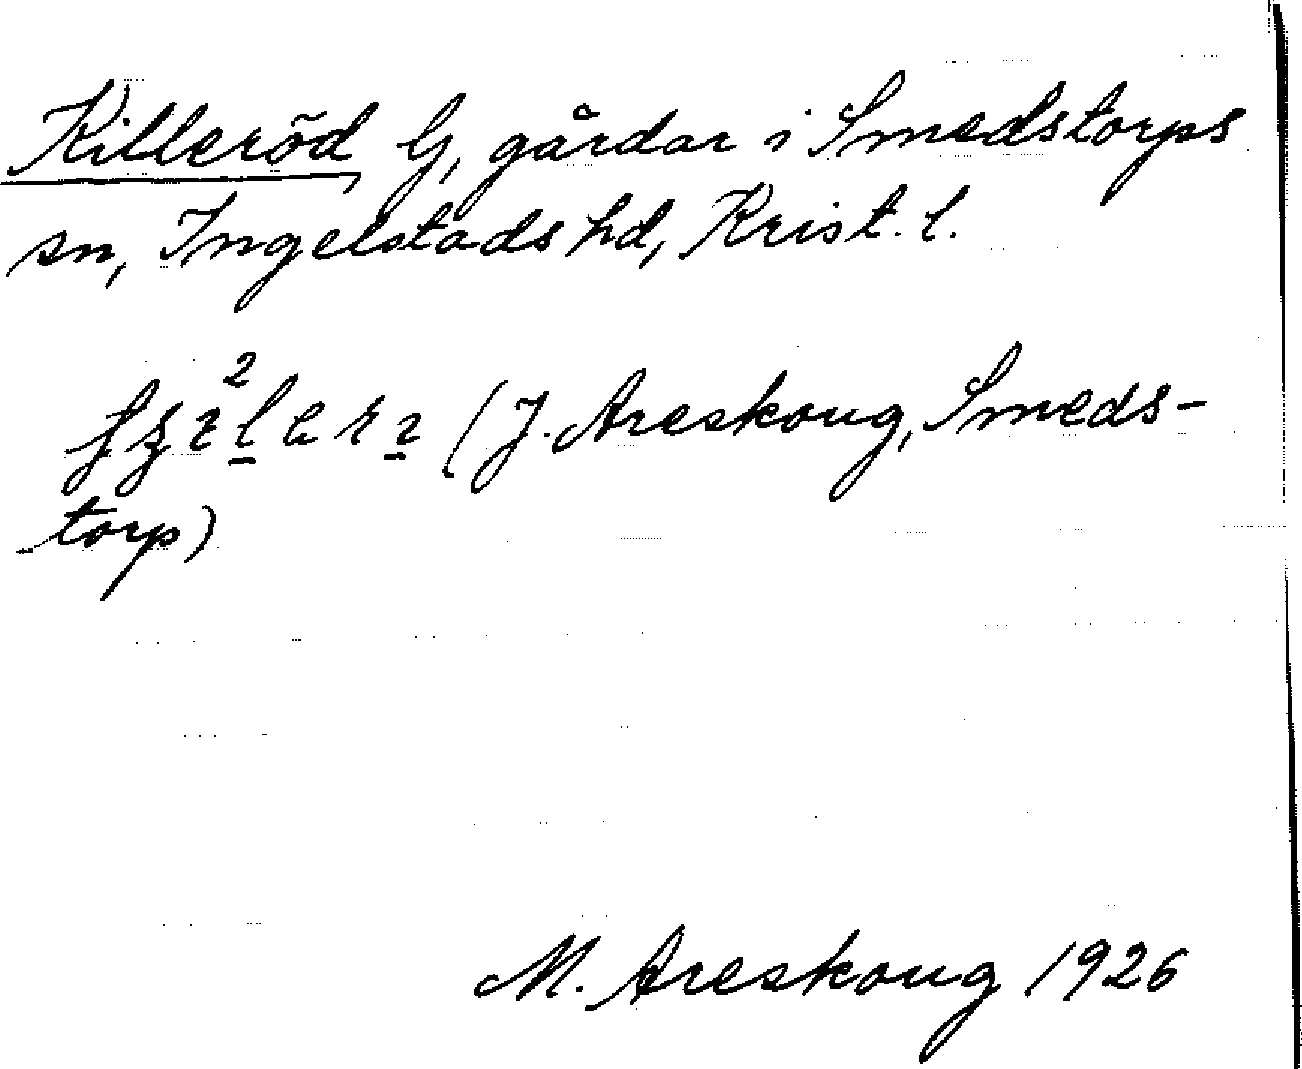 Killeröd G, gårdar i Smedstorps
sn, Ingelstads hd, Krist. l.
(J. Areskoug, Smeds-
torp)
M. Areskoug 1926